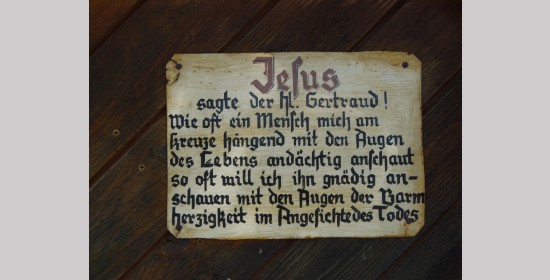 Jesus
sagte der hl. Gertraud!
Wie oft ein Mensch mich am
Kreuze hängend mit den Augen
des Lebens andächtig anschaut
so oft will ich ihn gnädig an-
schauen mit den Augen der Barm
herzigkeit im Angesichte des Todes